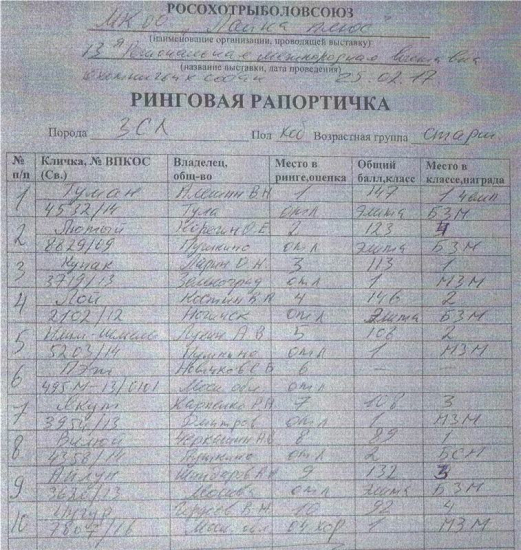 РОСОХОТРЫБОЛОВСОЮЗ
МКОО "Лайка плюс"
(наименование организации, проводящей выставку)
13я Региональная межпородная выставка
охотничьих собак 25.02.17
(название выставки, дата проведения)
РИНГОВАЯ РАПОРТИЧКА
Порода ЗСЛ Пол коб Возрастная группа старш.
№ п/п Кличка, № ВПКОС (Св.) Владелец, общ-во Место в ринге,оценка Общий балл,класс Место в классе,награда
1 Туман Алешин В Н 1 147 1
4532/14 Тула отл Элита БЗМ
2 Лютый 2 123 4
8829/09 Пушкино отл Элита БЗМ
3 Кунак О Н 3 113 1
3719/13 Зеленоград отл 1 МЗМ
4 Лой Костин В А 4 146 2
2102/12 Ногинск отл Элита БЗМ
5 Лукин А В 5 108 2
5203/14 Пушкино отл 1 МЗМ
6 Новиков Е В 6 — —
495М-13/0101 Моск обл отл
7 Якут Карпенко Р Н 7 108 3
3954/13 Дмитров отл 1 МЗМ
8 Вилюй Черкашин А В 8 89 1
4358/14 Пушкино отл 2 БСМ
9 Айлук 9 132 3
3626/13 Москва отл Элита БЗМ
10 В Н 10 92 4
7807/16 Моск обл оч хор 1 МЗМ